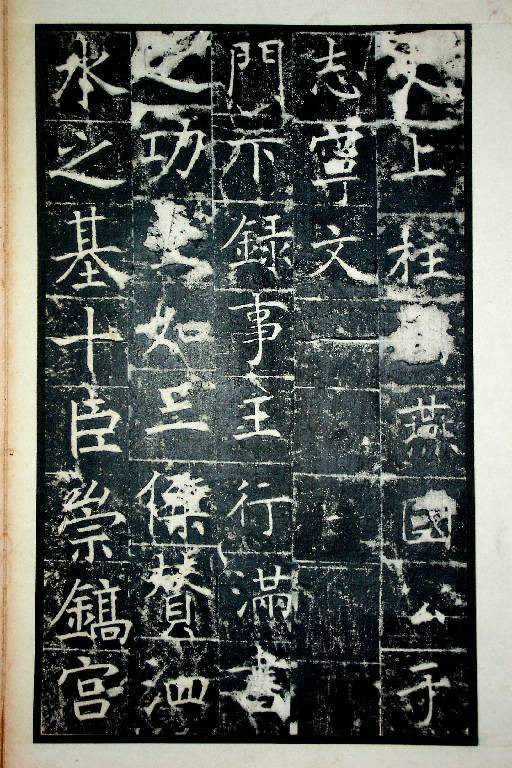 夫上柱國燕國公于
志寧文
門下録事王行滿書
之功如三傑贊泗
水之基十臣崇鎬宮